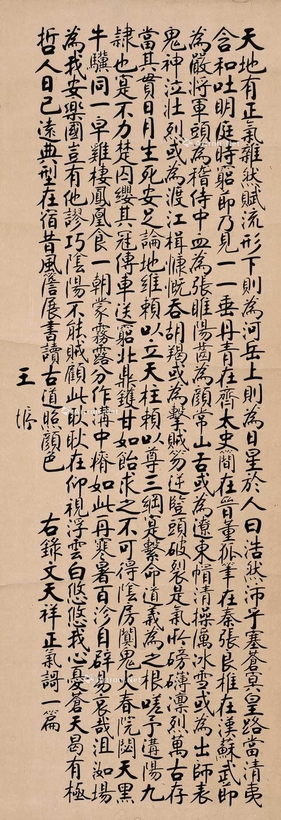 天地有正氣雜然賦流形下則為河岳上則為日星於人曰浩然沛乎塞蒼冥皇路當清夷
含和吐明庭時窮節乃見一一垂丹青在齊太史簡在晉董狐筆在秦張良椎在漢蘇武節
為嚴將軍頭為嵇侍中血為張睢陽齒為顏常山舌或為遼東帽清操厲冰雪或為出師表
鬼神泣壯烈或為渡江楫慷慨吞胡羯或為擊賊笏逆豎頭破裂是氣所磅礴凜烈萬古存
當其貫日月生死安足論地維賴以立天柱賴以尊三綱是繫命道義為之根嗟予遘陽九
隸也寔不力楚囚纓其冠傳車送窮北鼎鑊甘如飴求之不可得陰房闃鬼火春院閟天黑
牛驥同一皁雞棲鳳凰食一朝蒙霧露分作溝中瘠如此再寒暑百沴自辟易哀哉沮洳場
為我安樂國豈有他謬巧陰陽不能賊顧此耿耿在仰視浮雲白悠悠我心憂蒼天曷有極
哲人日已遠典型在宿昔風簷展書讀古道照顏色 右錄文天祥正氣謌一篇
王